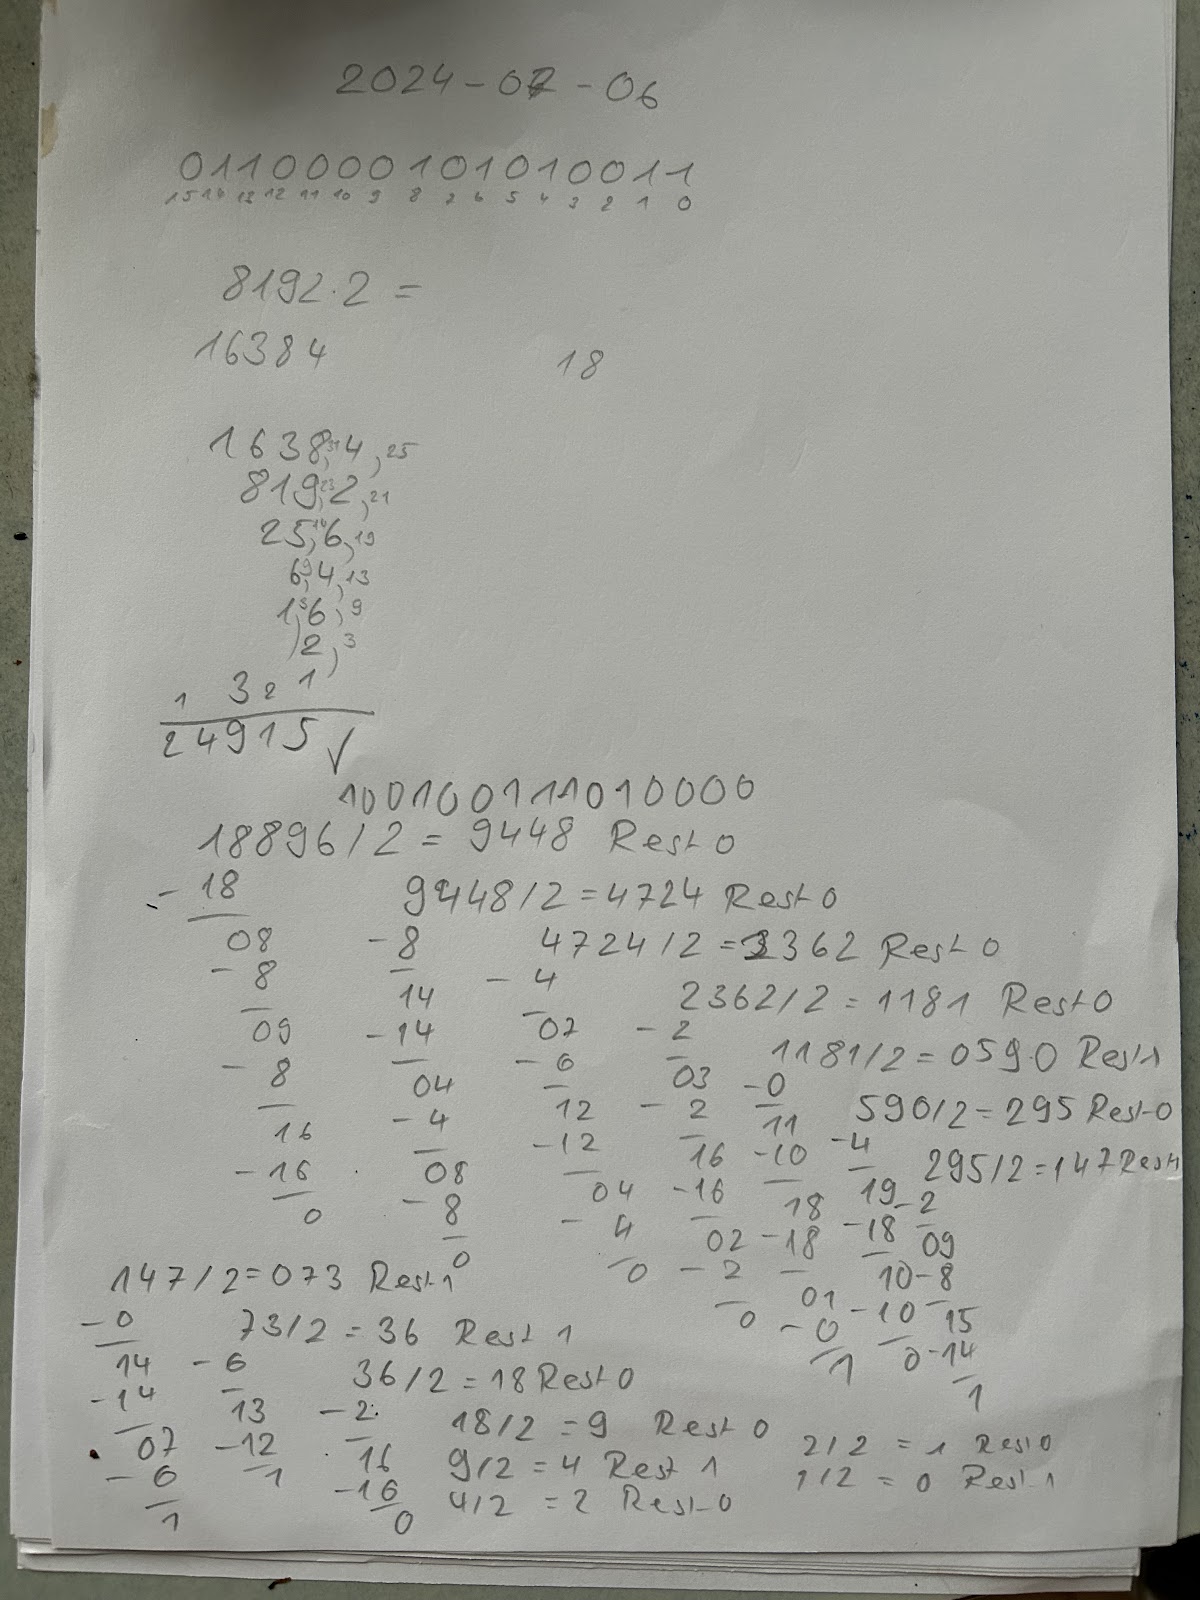 2024-07-06
0110000101010011
15 14 13 12 11 10 9 8 7 6 5 4 3 2 1 0
8192·2 =
16384
18
16384, 25
8192, 21
256, 19
64, 13
16, 9
2, 3
1 3 2 1
24915 √
100100111010000
18896/2 = 9448 Rest 0
- 18
9448/2 = 4724 Rest 0
08 - 8
4724/2 = 2362 Rest 0
- 8 14 - 4
2362/2 = 1181 Rest 0
09 - 14 07 - 2
1181/2 = 0590 Rest 1
- 8 04 - 6 03 - 0
590/2 = 295 Rest 0
16 - 4 12 - 2 11 - 4
295/2 = 147 Rest 1
- 16 08 - 12 16 - 10 19 - 2
0 - 8 04 - 16 18 - 18 09
0 - 4 02 - 18 10 - 8
0 - 2 01 - 10 15
0 - 0 0 - 14
1 1
147/2 = 073 Rest 1
- 0
73/2 = 36 Rest 1
14 - 6
36/2 = 18 Rest 0
- 14 13 - 2
18/2 = 9 Rest 0
07 - 12 16
9/2 = 4 Rest 1
- 6 1 - 16
4/2 = 2 Rest 0
1 0
2/2 = 1 Rest 0
1/2 = 0 Rest 1